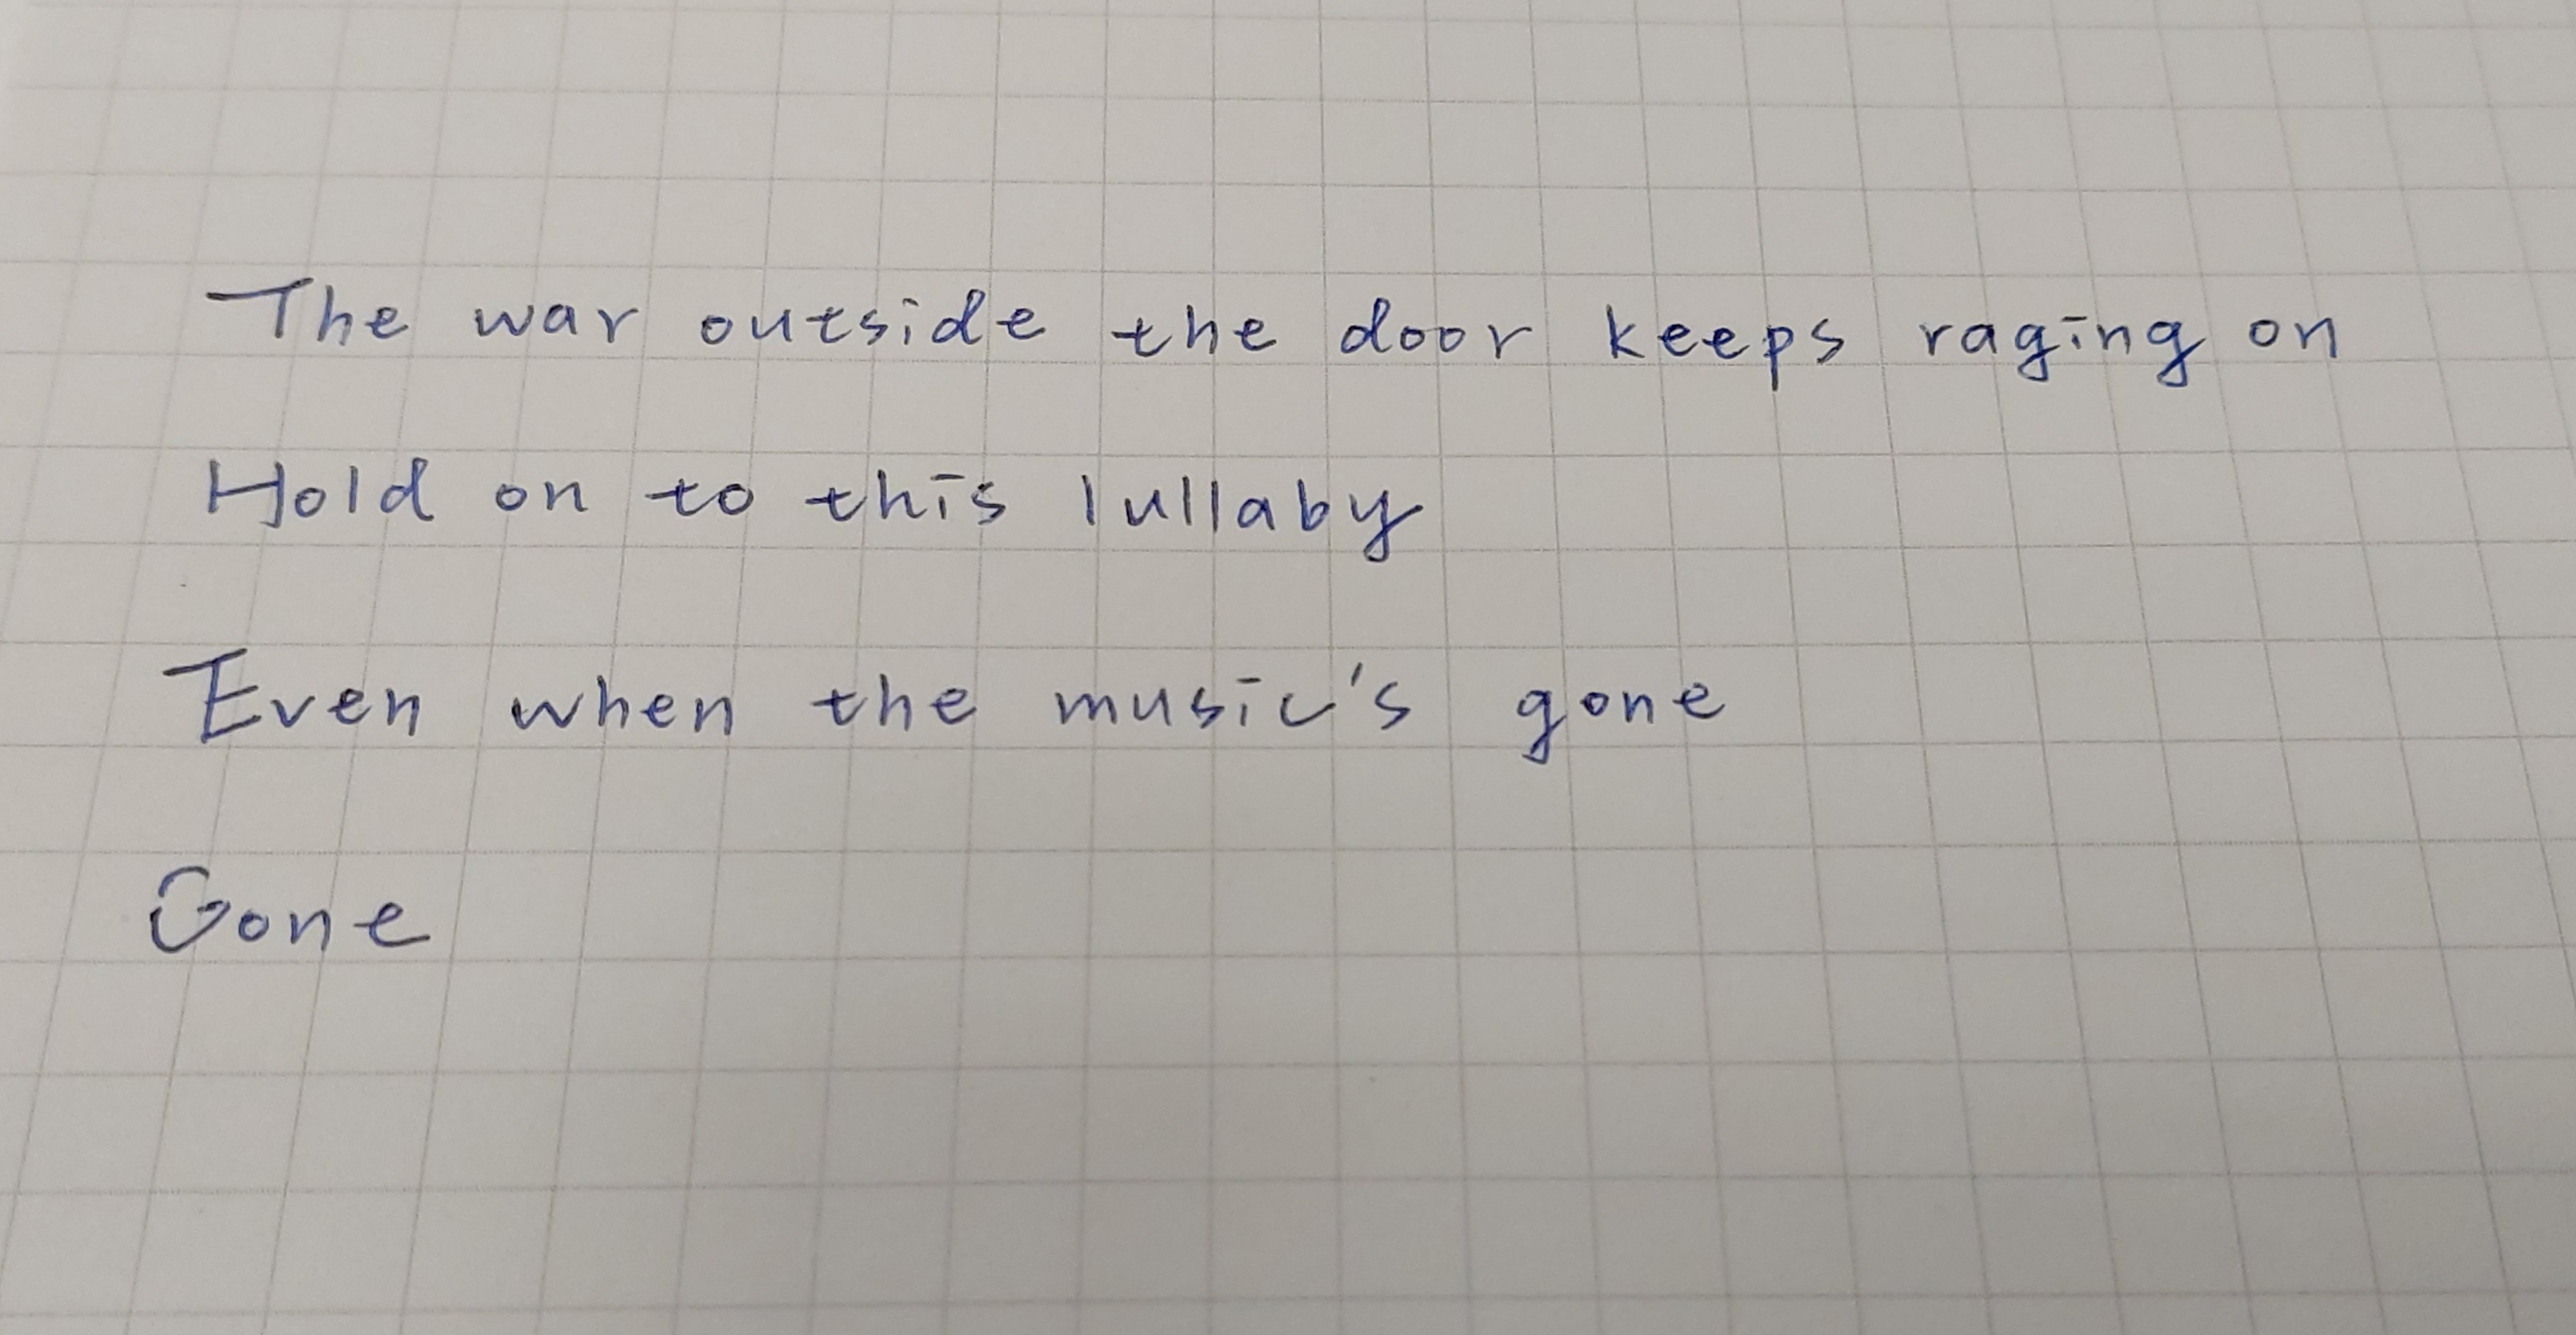 The war outside the door keeps raging on
Hold on to this lullaby
Even when the music's gone
Gone